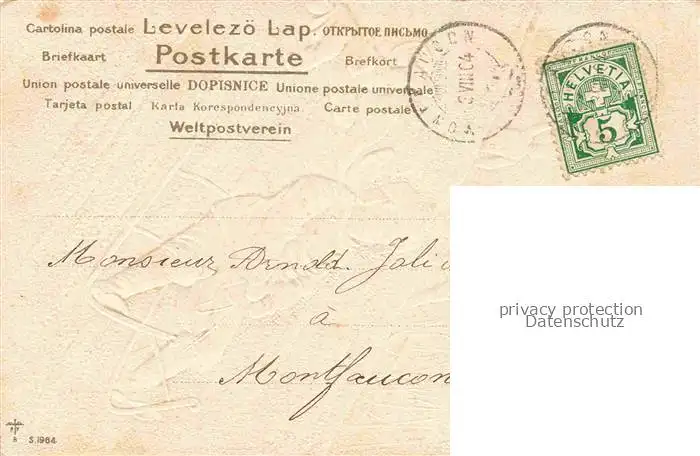 Cartolina postale Levelezö Lap. ОТКРЫТОЕ ПИСЬМО
Briefkaart Postkarte Brefkort
Union postale universelle DOPISNICE Unione postale universale
Tarjeta postal Karta Korespondencyjna Carte postale
Weltpostverein
VIII 04
HELVETIA
5
Monsieur Arnold Joli
à
Montfaucon
privacy protection
Datenschutz
S. 1964